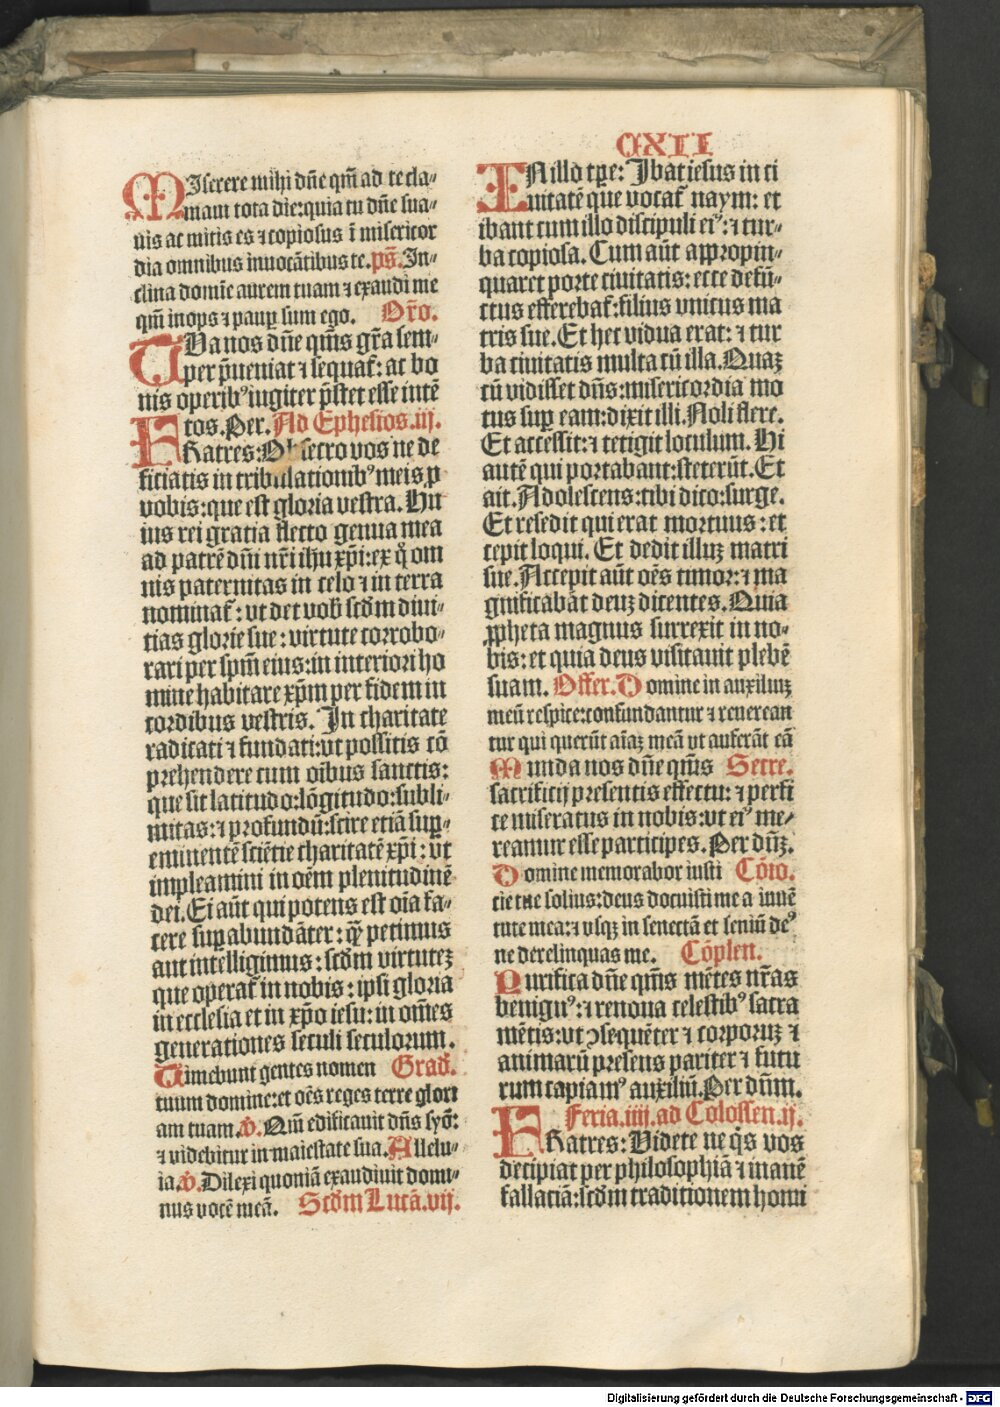 CXII
MIserere mihi dñe qm̃ ad te cla⸗
mam tota die: quia tu dñe sua⸗
uis ac mitis es ⁊ copiosus ĩ misericor
dia omnibus inuocãtibus te. ps̃. In⸗
clina domĩe aurem tuam ⁊ exaudi me
qm̃ inops ⁊ paup̱ sum ego. Or̃o.
TVa nos dñe qm̃s gr̃a sem⸗
per p̃ueniat ⁊ sequat᷑: ac bo
nis operibꝰ iugiter p̃stet esse intẽ
tos. Per. Ad Ephesios.iij.
FRatres: Obsecro vos ne de
ficiatis in tribulationibꝰ meis ꝓ
vobis: que est gloria vestra. Hu
ius rei gratia flecto genua mea
ad patrẽ dñi nr̃i ihũ xp̃i: ex q̊ om
nis paternitas in celo ⁊ in terra
nominat᷑: ut det vob̃ scd̃m diui⸗
tias glorie sue: virtute corrobo⸗
rari per sp̃m eius: in interiori ho
mine habitare xp̃m per fidem in
cordibus vestris. In charitate
radicati ⁊ fundati: vt possitis cõ
prehendere cum oĩbus sanctis:
que sit latitudo: lõgitudo: subli⸗
mitas: ⁊ profundũ: scire etiã sup̱⸗
eminentẽ sciẽtie charitatẽ xp̃i: vt
impleamini in oẽm plenitudinẽ
dei. Ei aũt qui potens est oĩa fa⸗
cere sup̱abundãter: q̃ꝫ petimus
aut intelligimus: scd̃m virtuteꝫ
que operat᷑ in nobis: ipsi gloria
in ecclesia et in xp̃o iesu: in om̃es
generationes seculi seculorum.
Timebunt gentes nomen Grad̃.
tuum domine: et oẽs reges terre glori
am tuam. ꝟ. Qm̃ edificauit dñs syõ:
⁊ videbitur in maiestate sua. Allelu⸗
ia. ꝟ. Dilexi quoniã exaudiuit domi⸗
nus vocẽ meã. Scd̃m Lucã.vij.
IN illo tp̃e: Ibat iesus in ci
uitatẽ que vocat᷑ naym: et
ibant cum illo discipuli eiꝰ: ⁊ tur⸗
ba copiosa. Cum aũt appropin⸗
quaret porte ciuitatis: ecce defũ⸗
ctus efferebat᷑: filius vnicus ma
tris sue. Et hec vidua erat: ⁊ tur
ba ciuitatis multa cũ illa. Quaꝫ
cũ vidisset dñs: misericordia mo
tus sup̱ eam: dixit illi. Noli flere.
Et accessit: ⁊ tetigit loculum. Hi
autẽ qui portabant: steterũt. Et
ait. Adolescens: tibi dico: surge.
Et resedit qui erat mortuus: et
cepit loqui. Et dedit illuꝫ matri
sue. Accepit aũt oẽs timor: ⁊ ma
gnificabãt deuꝫ dicentes. Quia
ꝓpheta magnus surrexit in no⸗
bis: et quia deus visitauit plebẽ
suam. Offer. Domine in auxiliuꝫ
meũ respice: confundantur ⁊ reuerean
tur qui querũt aĩaꝫ meã vt auferãt eã
Munda nos dñe qm̃s Secre.
sacrificij presentis effectu: ⁊ perfi
ce miseratus in nobis: vt eiꝰ me⸗
reamur esse participes. Per dñꝫ.
Domine memorabor iusti Cõio.
cie tue solius: deus docuisti me a iuuẽ
tute mea: ⁊ vsqꝫ in senectã et seniũ deꝰ
ne derelinquas me. Cõplen.
Purifica dñe qm̃s mẽtes nr̃as
benignꝰ: ⁊ renoua celestibꝰ sacra
mẽtis: vt ↄsequẽter ⁊ corporuꝫ ⁊
animarũ presens pariter ⁊ futu
rum capiamꝰ auxiliũ. Per dñm.
Feria.iiij. ad Colossen.ij.
FRatres: Videte ne q̃s vos
decipiat per philosophiã ⁊ inanẽ
fallaciã: scd̃m traditionem homi
Digitalisierung gefördert durch die Deutsche Forschungsgemeinschaft - DFG